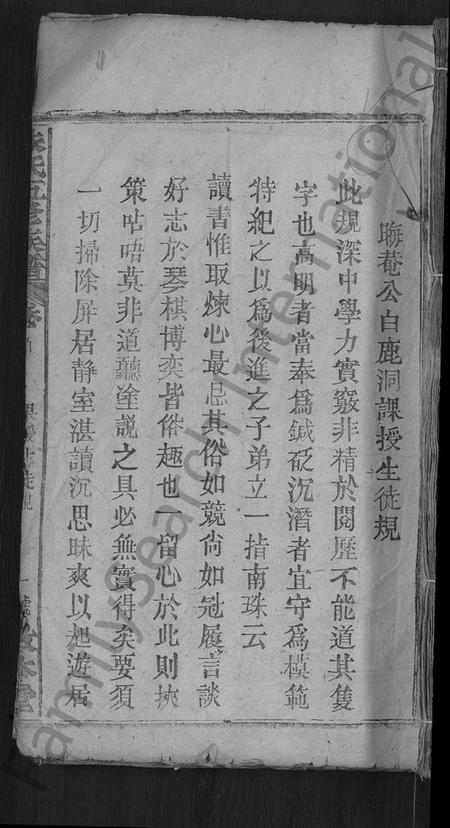 晦菴公白鹿洞課授生徒規
此規深中學力實竅非精於閱歷不能道其隻
字也高明者當奉爲鍼砭沉潛者宜守爲模範
特紀之以爲後進之子弟立一指南珠云
讀書惟取煉心最忌其俗如競尙如冠履言談
好志於琴棋博奕皆俗趣也一留心於此則挾
策呫唔莫非道聽塗説之具必無實得矣要須
一切掃除屏居静室湛讀沉思昧爽以起遊居
氏五修族譜
FamilySearch International